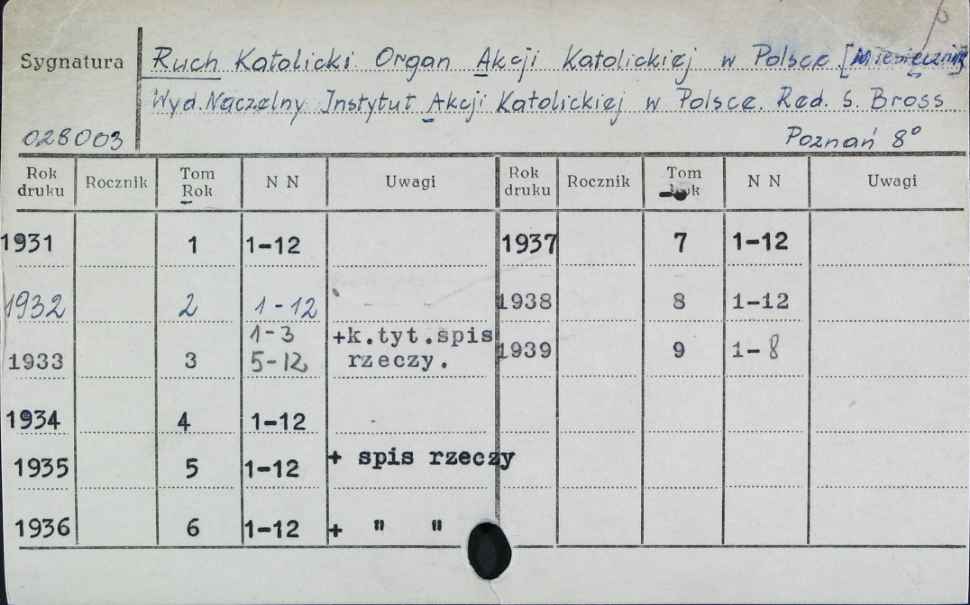 Sygnatura
Ruch Katolicki Organ Akcji Katolickiej w Polsce. [Miesięcznik]
Wyd. Naczelny Instytut Akcji Katolickiej w Polsce. Red. S. Bross
028003 Poznań 8°
Rok druku Rocznik Tom Rok N N Uwagi Rok druku Rocznik Tom Rok N N Uwagi
1931 1 1-12 1937 7 1-12
1932 2 1-12 1938 8 1-12
1933 3 1-3 5-12 +k.tyt.spis rzeczy. 1939 9 1-8
1934 4 1-12
1935 5 1-12 + spis rzeczy
1936 6 1-12 + " "